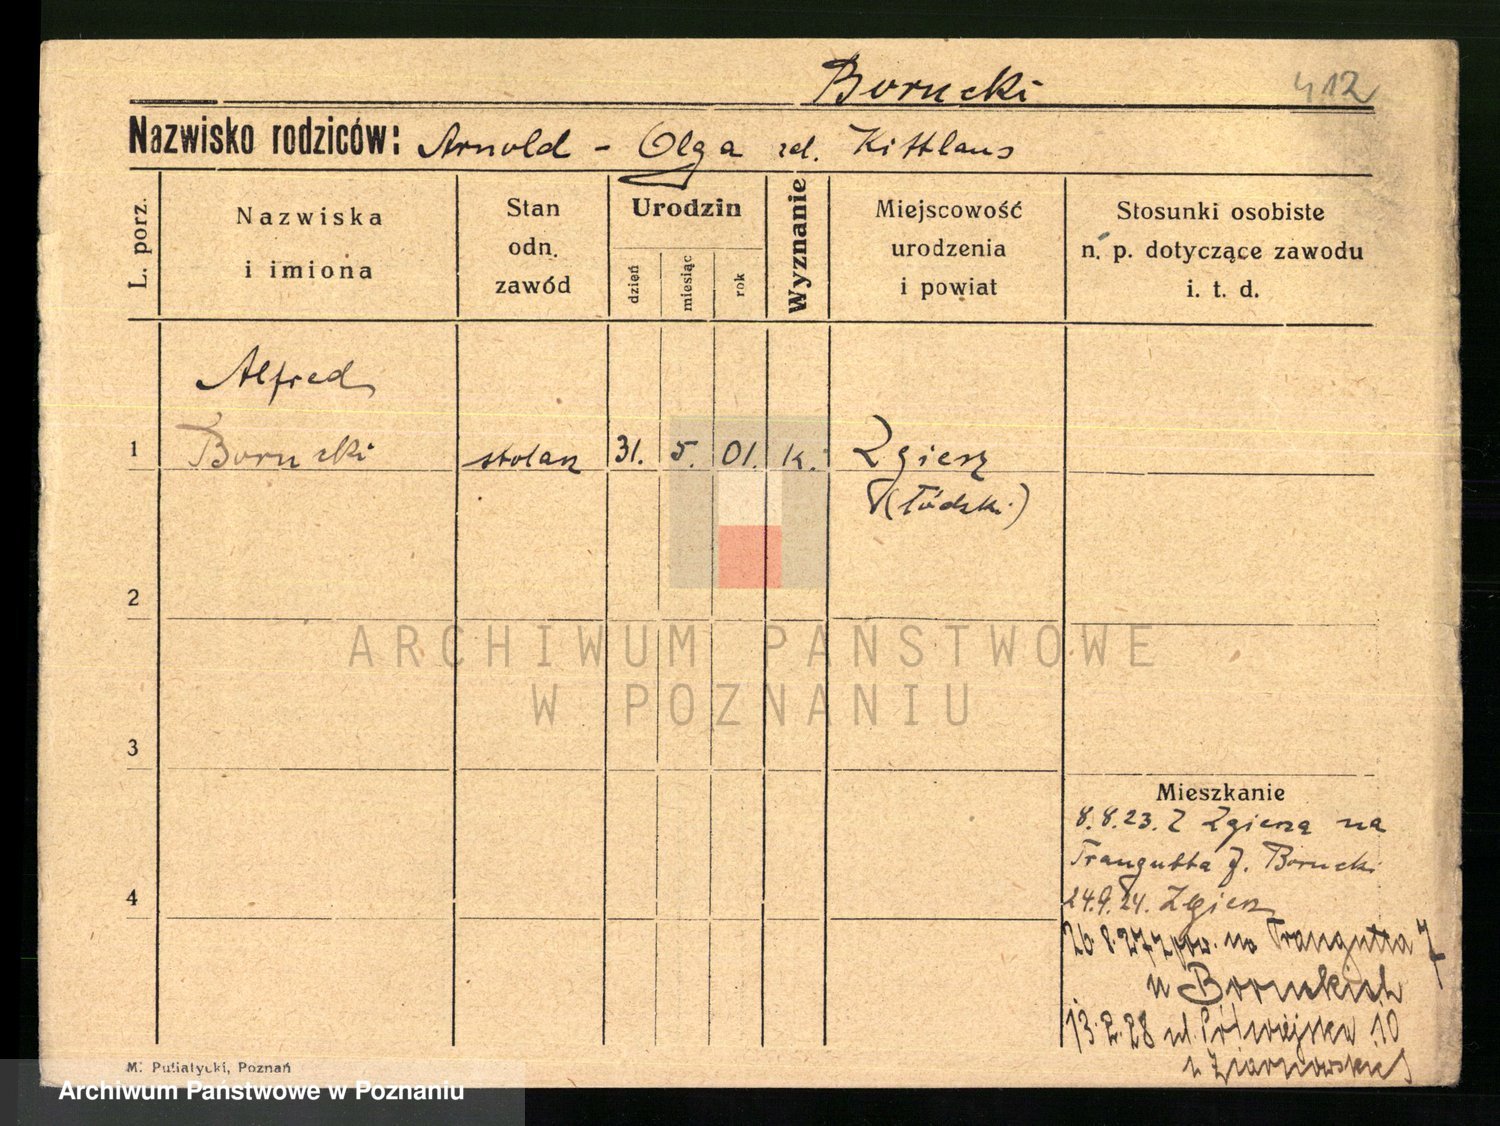 Borucki
412
Nazwisko rodziców: Arnold - Olga zd. Kittlaus
L. porz.
Nazwiska
i imiona
Stan
odn.
zawód
Urodzin
dzień
miesiąc
rok
Wyznanie
Miejscowość
urodzenia
i powiat
Stosunki osobiste
n. p. dotyczące zawodu
i. t. d.
Alfred
1 Borucki stolarz 31. 5. 01. k. Zgierz
(Łódzki)
2
ARCHIWUM PAŃSTWOWE
W POZNANIU
3
Mieszkanie
8.8.23. Z Zgierza na
Traugutta 7. Borucki
4
24.9.24. Zgierz
26.8.27 pow. na Traugutta 7
u Boruckich
13.2.28 ul. Półwiejska 10
M. Putiatycki, Poznań
Archiwum Państwowe w Poznaniu